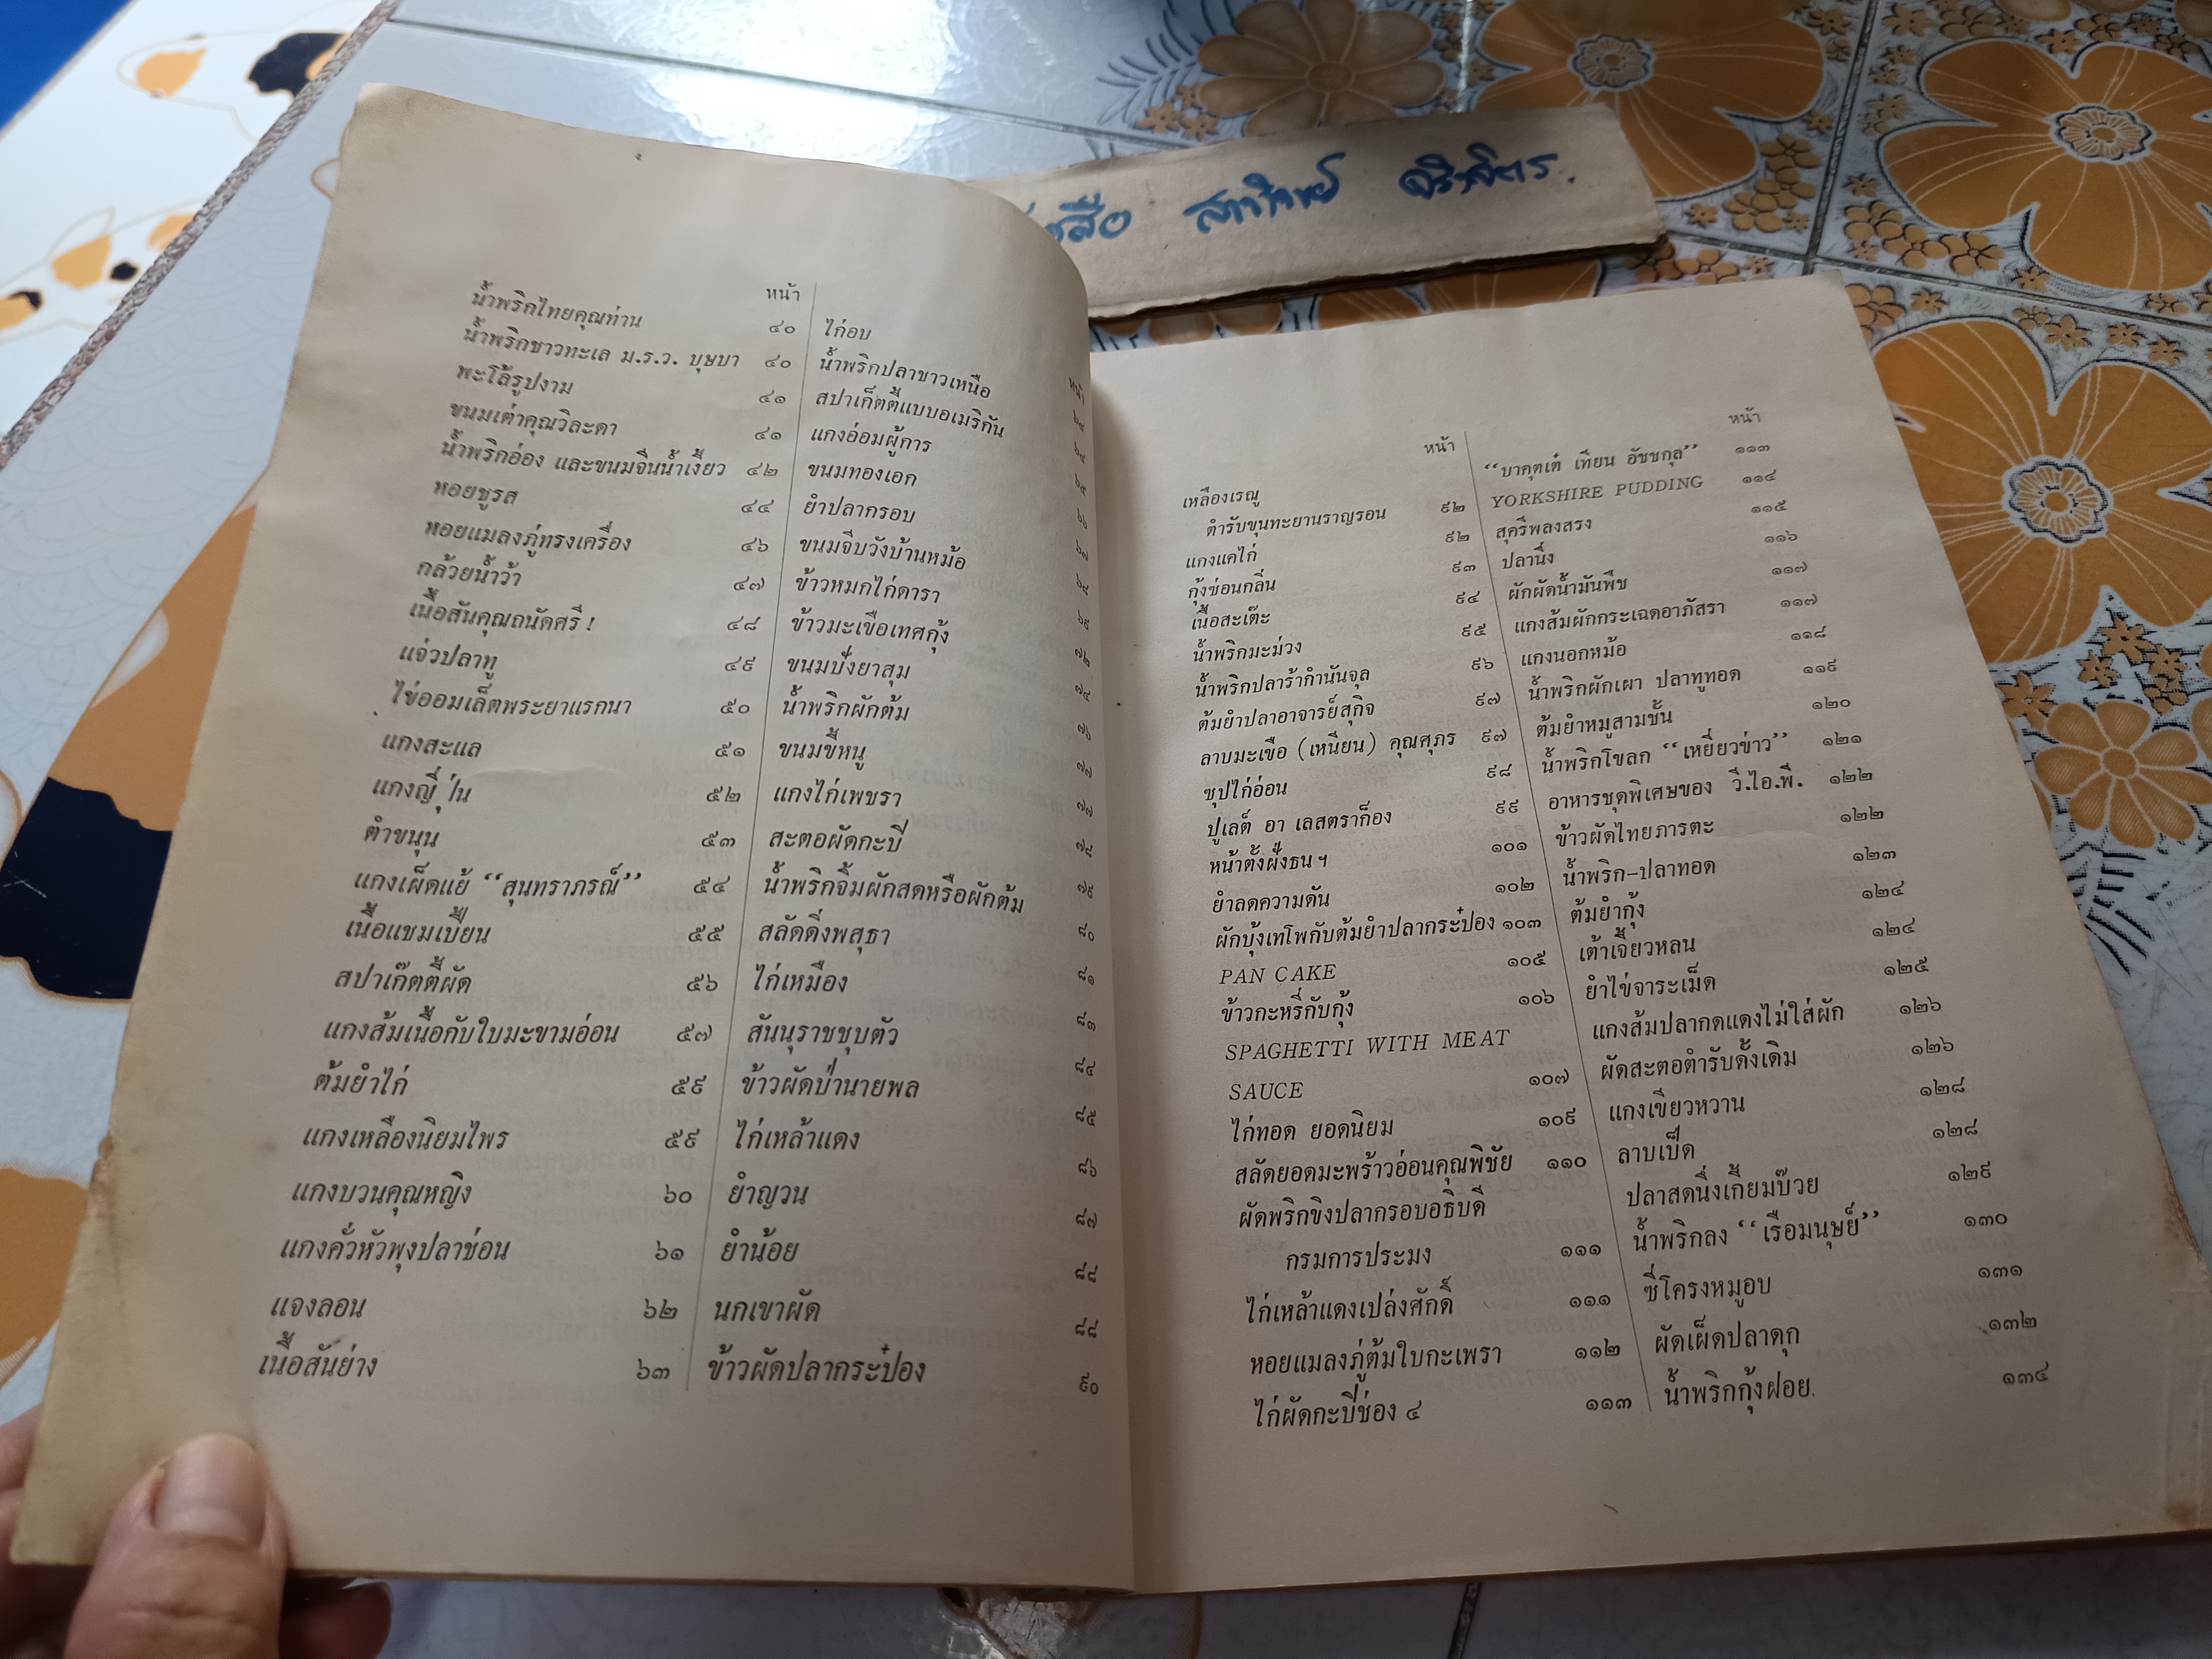 หน้า
น้ำพริกไทยคุณท่าน ๔๐
น้ำพริกชาวทะเล ม.ร.ว. บุษบา ๔๐
พะโล้รูปงาม ๔๑
ขนมเต่าคุณวิละดา ๔๑
น้ำพริกอ่อง และขนมจีนน้ำเงี้ยว ๔๒
หอยชูรส ๔๔
หอยแมลงภู่ทรงเครื่อง ๔๖
กล้วยน้ำว้า ๔๗
เนื้อสันคุณถนัดศรี ! ๔๘
แจ่วปลาทู ๔๙
ไข่ออมเล็ตพระยาแรกนา ๕๐
แกงสะแล ๕๑
แกงญี่ปุ่น ๕๒
ตำขนุน ๕๓
แกงเผ็ดแย้ “สุนทราภรณ์” ๕๔
เนื้อแชมเปี้ยน ๕๕
สปาเก๊ตตี้ผัด ๕๖
แกงส้มเนื้อกับใบมะขามอ่อน ๕๗
ต้มยำไก่ ๕๙
แกงเหลืองนิยมไพร ๕๙
แกงบวนคุณหญิง ๖๐
แกงคั่วหัวพุงปลาช่อน ๖๑
แจงลอน ๖๒
เนื้อสันย่าง ๖๓
หน้า
ไก่อบ ๖๔
น้ำพริกปลาชาวเหนือ ๖๔
สปาเก็ตตี้แบบอเมริกัน ๖๕
แกงอ่อมผู้การ ๖๖
ขนมทองเอก ๖๗
ยำปลากรอบ
ขนมจีบวังบ้านหม้อ ๖๙
ข้าวหมกไก่ดารา ๗๒
ข้าวมะเขือเทศกุ้ง ๗๔
ขนมปังยาสุม ๗๖
น้ำพริกผักต้ม ๗๗
ขนมขี้หนู ๗๗
แกงไก่เพชรา
สะตอผัดกะปี ๗๙
น้ำพริกจิ้มผักสดหรือผักต้ม ๘๐
สลัดดิ่งพสุธา ๘๑
ไก่เหมือง ๘๓
สันนุราชชุบตัว ๘๔
ข้าวผัดป่านายพล ๘๕
ไก่เหล้าแดง ๘๖
ยำญวน ๘๗
ยำน้อย ๘๘
นกเขาผัด ๘๘
ข้าวผัดปลากระป๋อง ๙๐
หน้า
เหลืองเรณู
ตำรับขุนทะยานราญรอน ๙๒
แกงแคไก่ ๙๒
กุ้งซ่อนกลิ่น ๙๓
เนื้อสะเต๊ะ ๙๔
น้ำพริกมะม่วง ๙๕
น้ำพริกปลาร้ากำนันจุล ๙๖
ต้มยำปลาอาจารย์สุกิจ ๙๗
ลาบมะเขือ (เหนียน) คุณศุภร ๙๗
ซุปไก่อ่อน ๙๘
ปูเลต์ อา เลสตราก็อง ๙๙
หน้าตั้งฝั่งธน ฯ ๑๐๑
ยำลดความดัน ๑๐๒
ผักบุ้งเทโพกับต้มยำปลากระป๋อง ๑๐๓
PAN CAKE ๑๐๕
ข้าวกะหรี่กับกุ้ง ๑๐๖
SPAGHETTI WITH MEAT
SAUCE ๑๐๗
ไก่ทอด ยอดนิยม ๑๐๙
สลัดยอดมะพร้าวอ่อนคุณพิชัย ๑๑๐
ผัดพริกขิงปลากรอบอธิบดี
กรมการประมง ๑๑๑
ไก่เหล้าแดงเปล่งศักดิ์ ๑๑๑
หอยแมลงภู่ต้มใบกะเพรา ๑๑๒
ไก่ผัดกะปิช่อง ๔ ๑๑๓
หน้า
“บาคุตเต๋ เทียน อัชชกุล” ๑๑๓
YORKSHIRE PUDDING ๑๑๔
สุครีพลงสรง ๑๑๕
ปลานึ่ง ๑๑๖
ผักผัดน้ำมันพืช ๑๑๗
แกงส้มผักกระเฉดอาภัสรา ๑๑๗
แกงนอกหม้อ ๑๑๘
น้ำพริกผักเผา ปลาทูทอด ๑๑๙
ต้มยำหมูสามชั้น ๑๒๐
น้ำพริกโขลก “เหยี่ยวข่าว” ๑๒๑
อาหารชุดพิเศษของ วี.ไอ.พี. ๑๒๒
ข้าวผัดไทยภารตะ ๑๒๒
น้ำพริก-ปลาทอด ๑๒๓
ต้มยำกุ้ง ๑๒๔
เต้าเจี้ยวหลน ๑๒๔
ยำไข่จาระเม็ด ๑๒๕
แกงส้มปลากดแดงไม่ใส่ผัก ๑๒๖
ผัดสะตอตำรับดั้งเดิม ๑๒๖
แกงเขียวหวาน ๑๒๘
ลาบเป็ด ๑๒๘
ปลาสดนึ่งเกี้ยมบ๊วย ๑๒๙
น้ำพริกลง “เรือมนุษย์” ๑๓๐
ซี่โครงหมูอบ ๑๓๑
ผัดเผ็ดปลาดุก ๑๓๒
น้ำพริกกุ้งฝอย. ๑๓๔